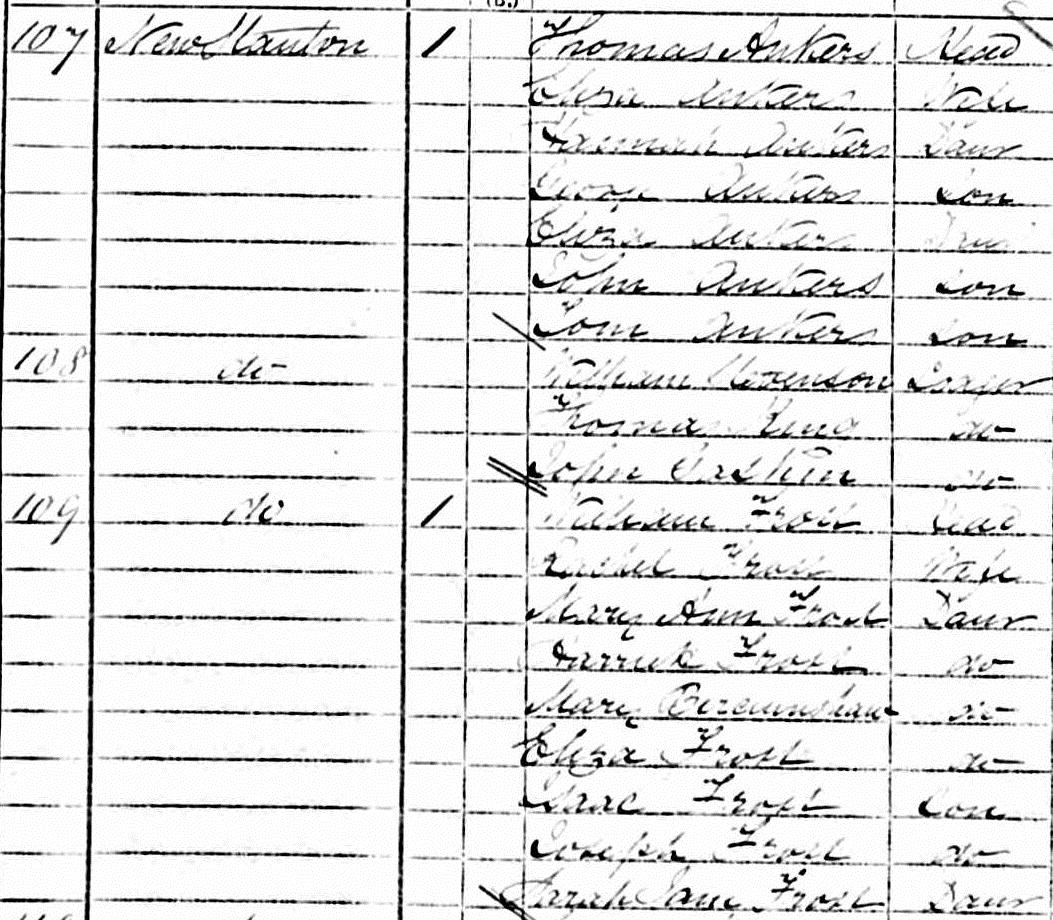 107 New Stanton 1 Thomas Ankers Head
Eliza Ankers Wife
Hannah Ankers Daur
George Ankers Son
Eliza Ankers Daur
John Ankers Son
Tom Ankers Son
108 do William Stevenson Lodger
Thomas King do
John Gaskin do
109 do 1 William Frost Head
Rachel Frost Wife
Mary Ann Frost Daur
Harriet Frost do
Mary Bircumshaw do
Eliza Frost do
Isaac Frost Son
Joseph Frost do
Sarah Jane Frost Daur